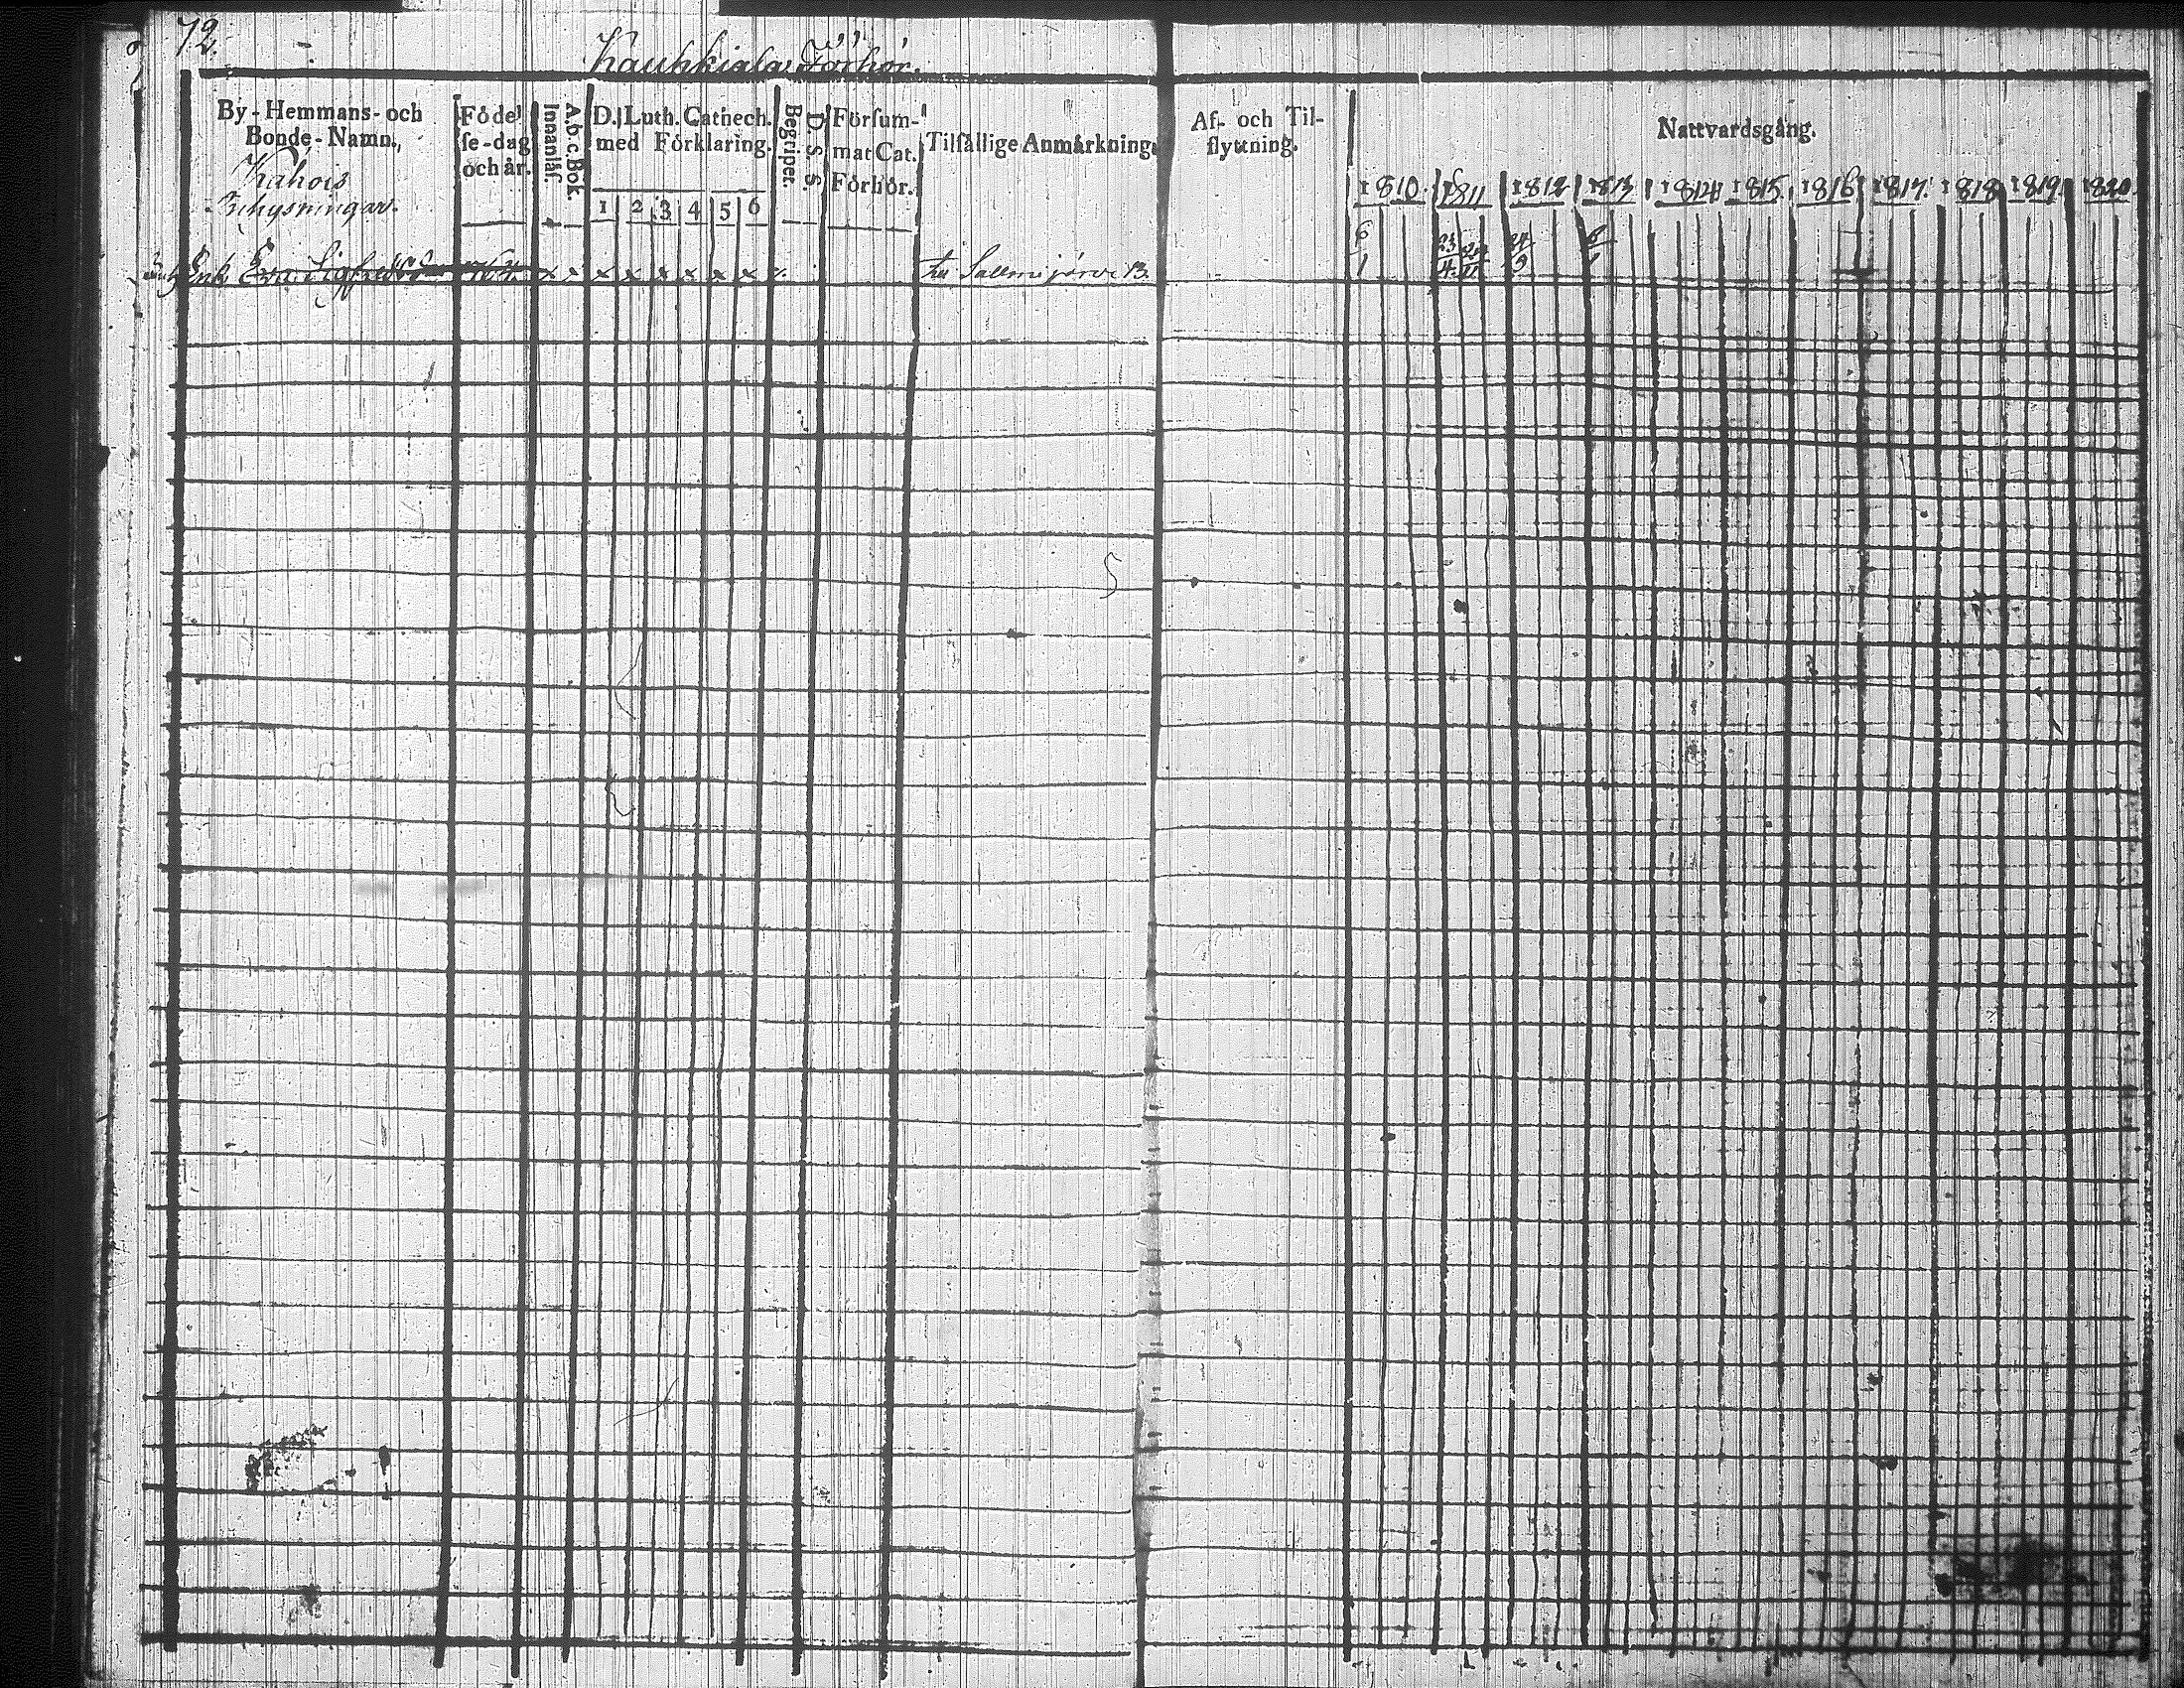 72.
Kauhkiala Förhör.
By-Hemmans- och
Bonde-Namn,
Kahois
Inhysningar.
Födel
se-dag
och år.
Innanläs.
A.b.c. Bok.
D. Luth. Catnech.
med Förklaring.
1 2 3 4 5 6
Begriper.
D. S. S.
Försum-
mat Cat.
Förhör.
Tilfällige Anmärkning.
Af- och Til-
flyttning.
Nattvardsgång.
1810. 1811 1812 1813 1814 1815. 1816 1817. 1818 1819. 1820.
Enk. Eva Sigfredsdr x x x x x x x x
6/1 23/4 24/11 24/9 6/1